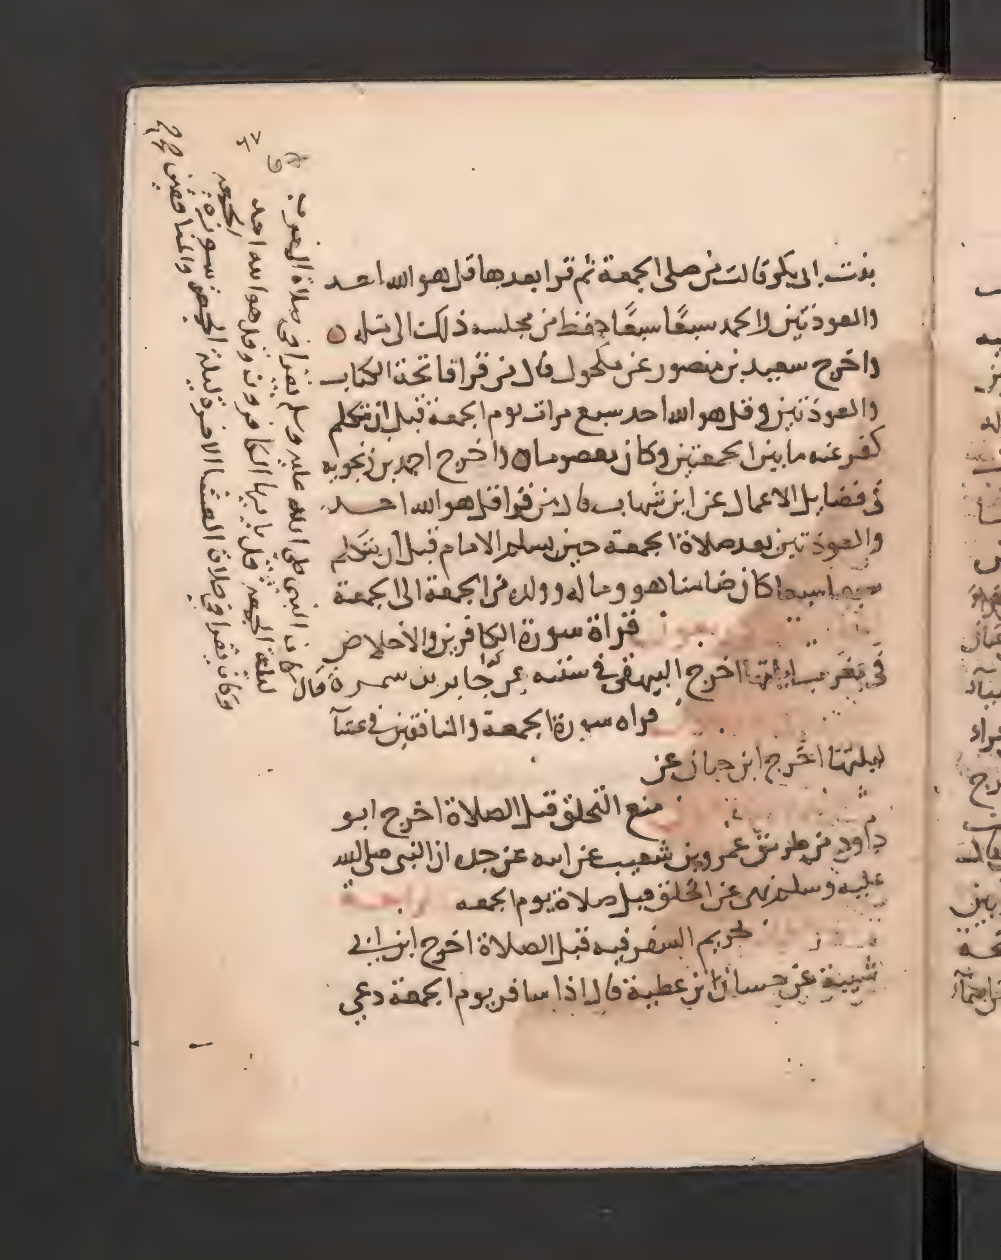 بنت ابى بكر قالت من صلى الجمعة ثم قرا بعدها قل هو الله احد
والمعوذتين والحمد سبعًا سبعًا حفظ من مجلسه ذلك الى مثله ٥
واخرج سعيد بن منصور عن مكحول قال من قرا فاتحة الكتاب
والمعوذتين وقل هو الله احد سبع مرات يوم الجمعة قبل ان يتكلم
كفر عنه ما بين الجمعتين وكان معصوما ٥ واخرج احمد بن زنجويه
فى فضايل الاعمال عن ابن شهاب قال من قرا قل هو الله احد
والمعوذتين بعد صلاة الجمعة حين يسلم الامام قبل ان يتكلم
سبعا سبعا كان ضامنا هو وماله وولده من الجمعة الى الجمعة
قراة سورة الكافرين والاخلاص
فى مغرب ليلتها اخرج البيهقى فى سننه عن جابر بن سمرة قال
قراه سورة الجمعة والمنافقين فى عشآ
ليلتها اخرج ابن حبان عن
منع التحلق قبل الصلاة اخرج ابو
داود من طريق عمرو بن شعيب عن ابيه عن جده ان النبى صلى الله
عليه وسلم نهى عن التحلق قبل صلاة يوم الجمعه
تحريم السفر فيه قبل الصلاة اخرج ابن ابى
شيبة عن حسان بن عطية قال اذا سافر يوم الجمعة دعى
كان النبى صلى الله عليه وسلم يقرا فى صلاة المغرب
ليلة الجمعه قل يا ايها الكافرون وقل هو الله احد
وكان يقرا فى صلاة العشا الاخرة ليلة الجمعه سورة الجمعه
والمنافقين